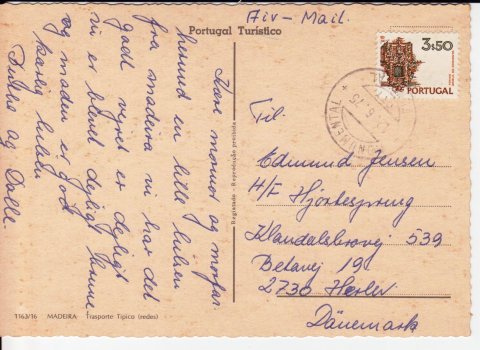 Air-Mail.
Portugal Turístico
3$50
PORTUGAL
Kære mormor og morfar
hermed en lille hilsen
fra madeira vi har det
godt vejret er dejligt
vi er blevet dejligt brune
og maden er god
kærlig hilsen
og Palle.
Registado - Reproducção proibida
Til:
Edmund Jensen
H/F Hjortespring
Klausdalsbrovej 539
Betavej 19
2730 Herlev
Dänemark
1163/16 MADEIRA Trasporte Típico (redes)